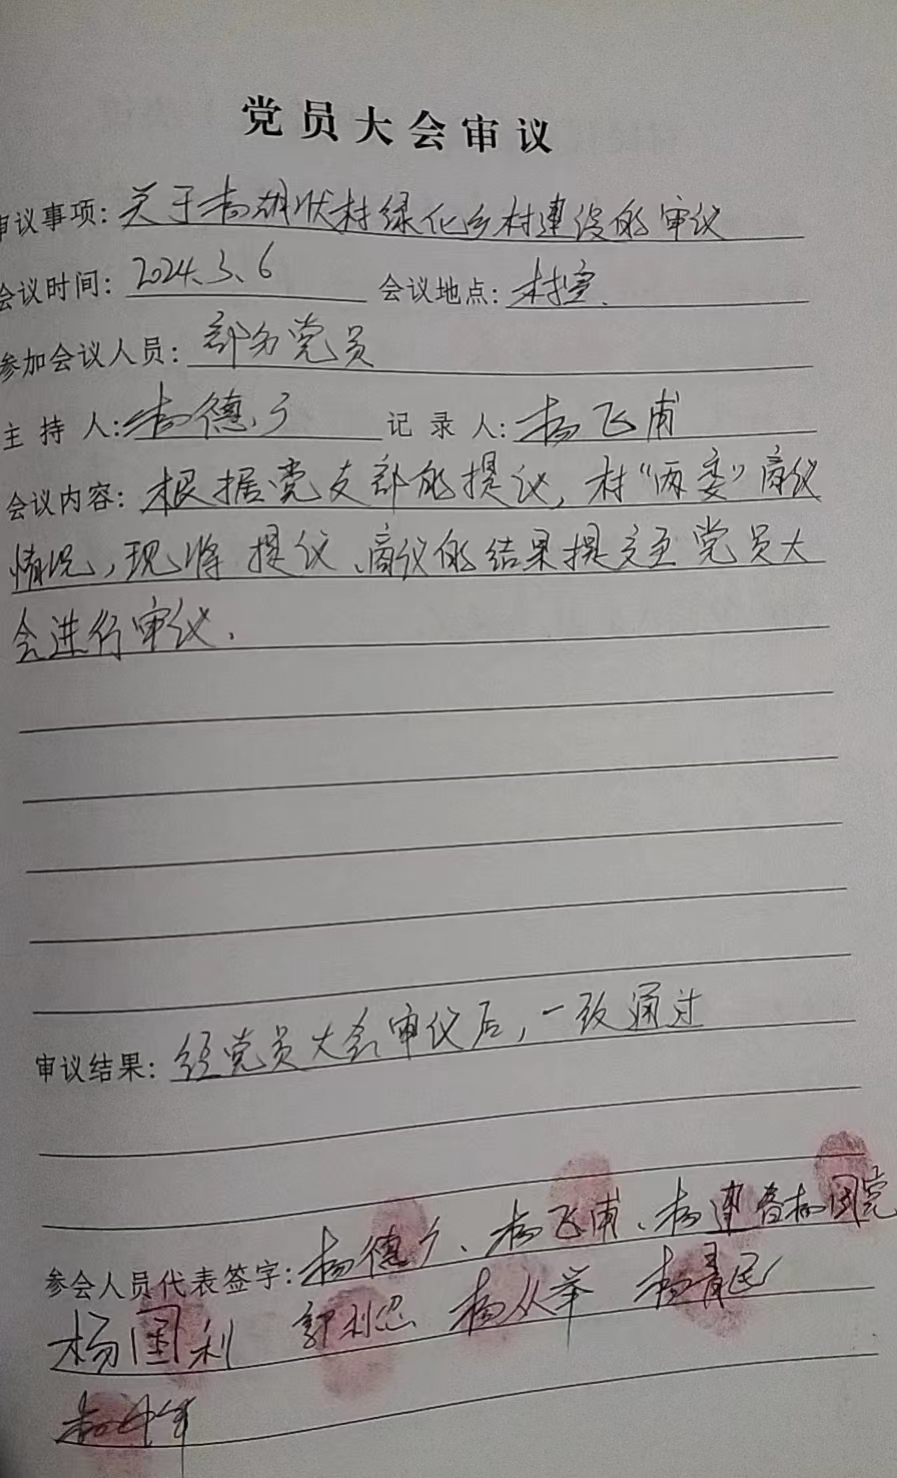 党员大会审议
审议事项:关于杨胡状村绿化乡村建设的审议
会议时间:2024.3.6 会议地点:村室.
参加会议人员:部分党员
主持人:杨德广 记录人:杨飞甫
会议内容:根据党支部的提议,村“两委”商议
情况,现将提议、商议的结果提交至党员大
会进行审议.
审议结果:经党员大会审议后,一致通过
参会人员代表签字:杨德广、杨飞甫、杨建 杨国党
杨国利 郭利 杨从举 杨青民